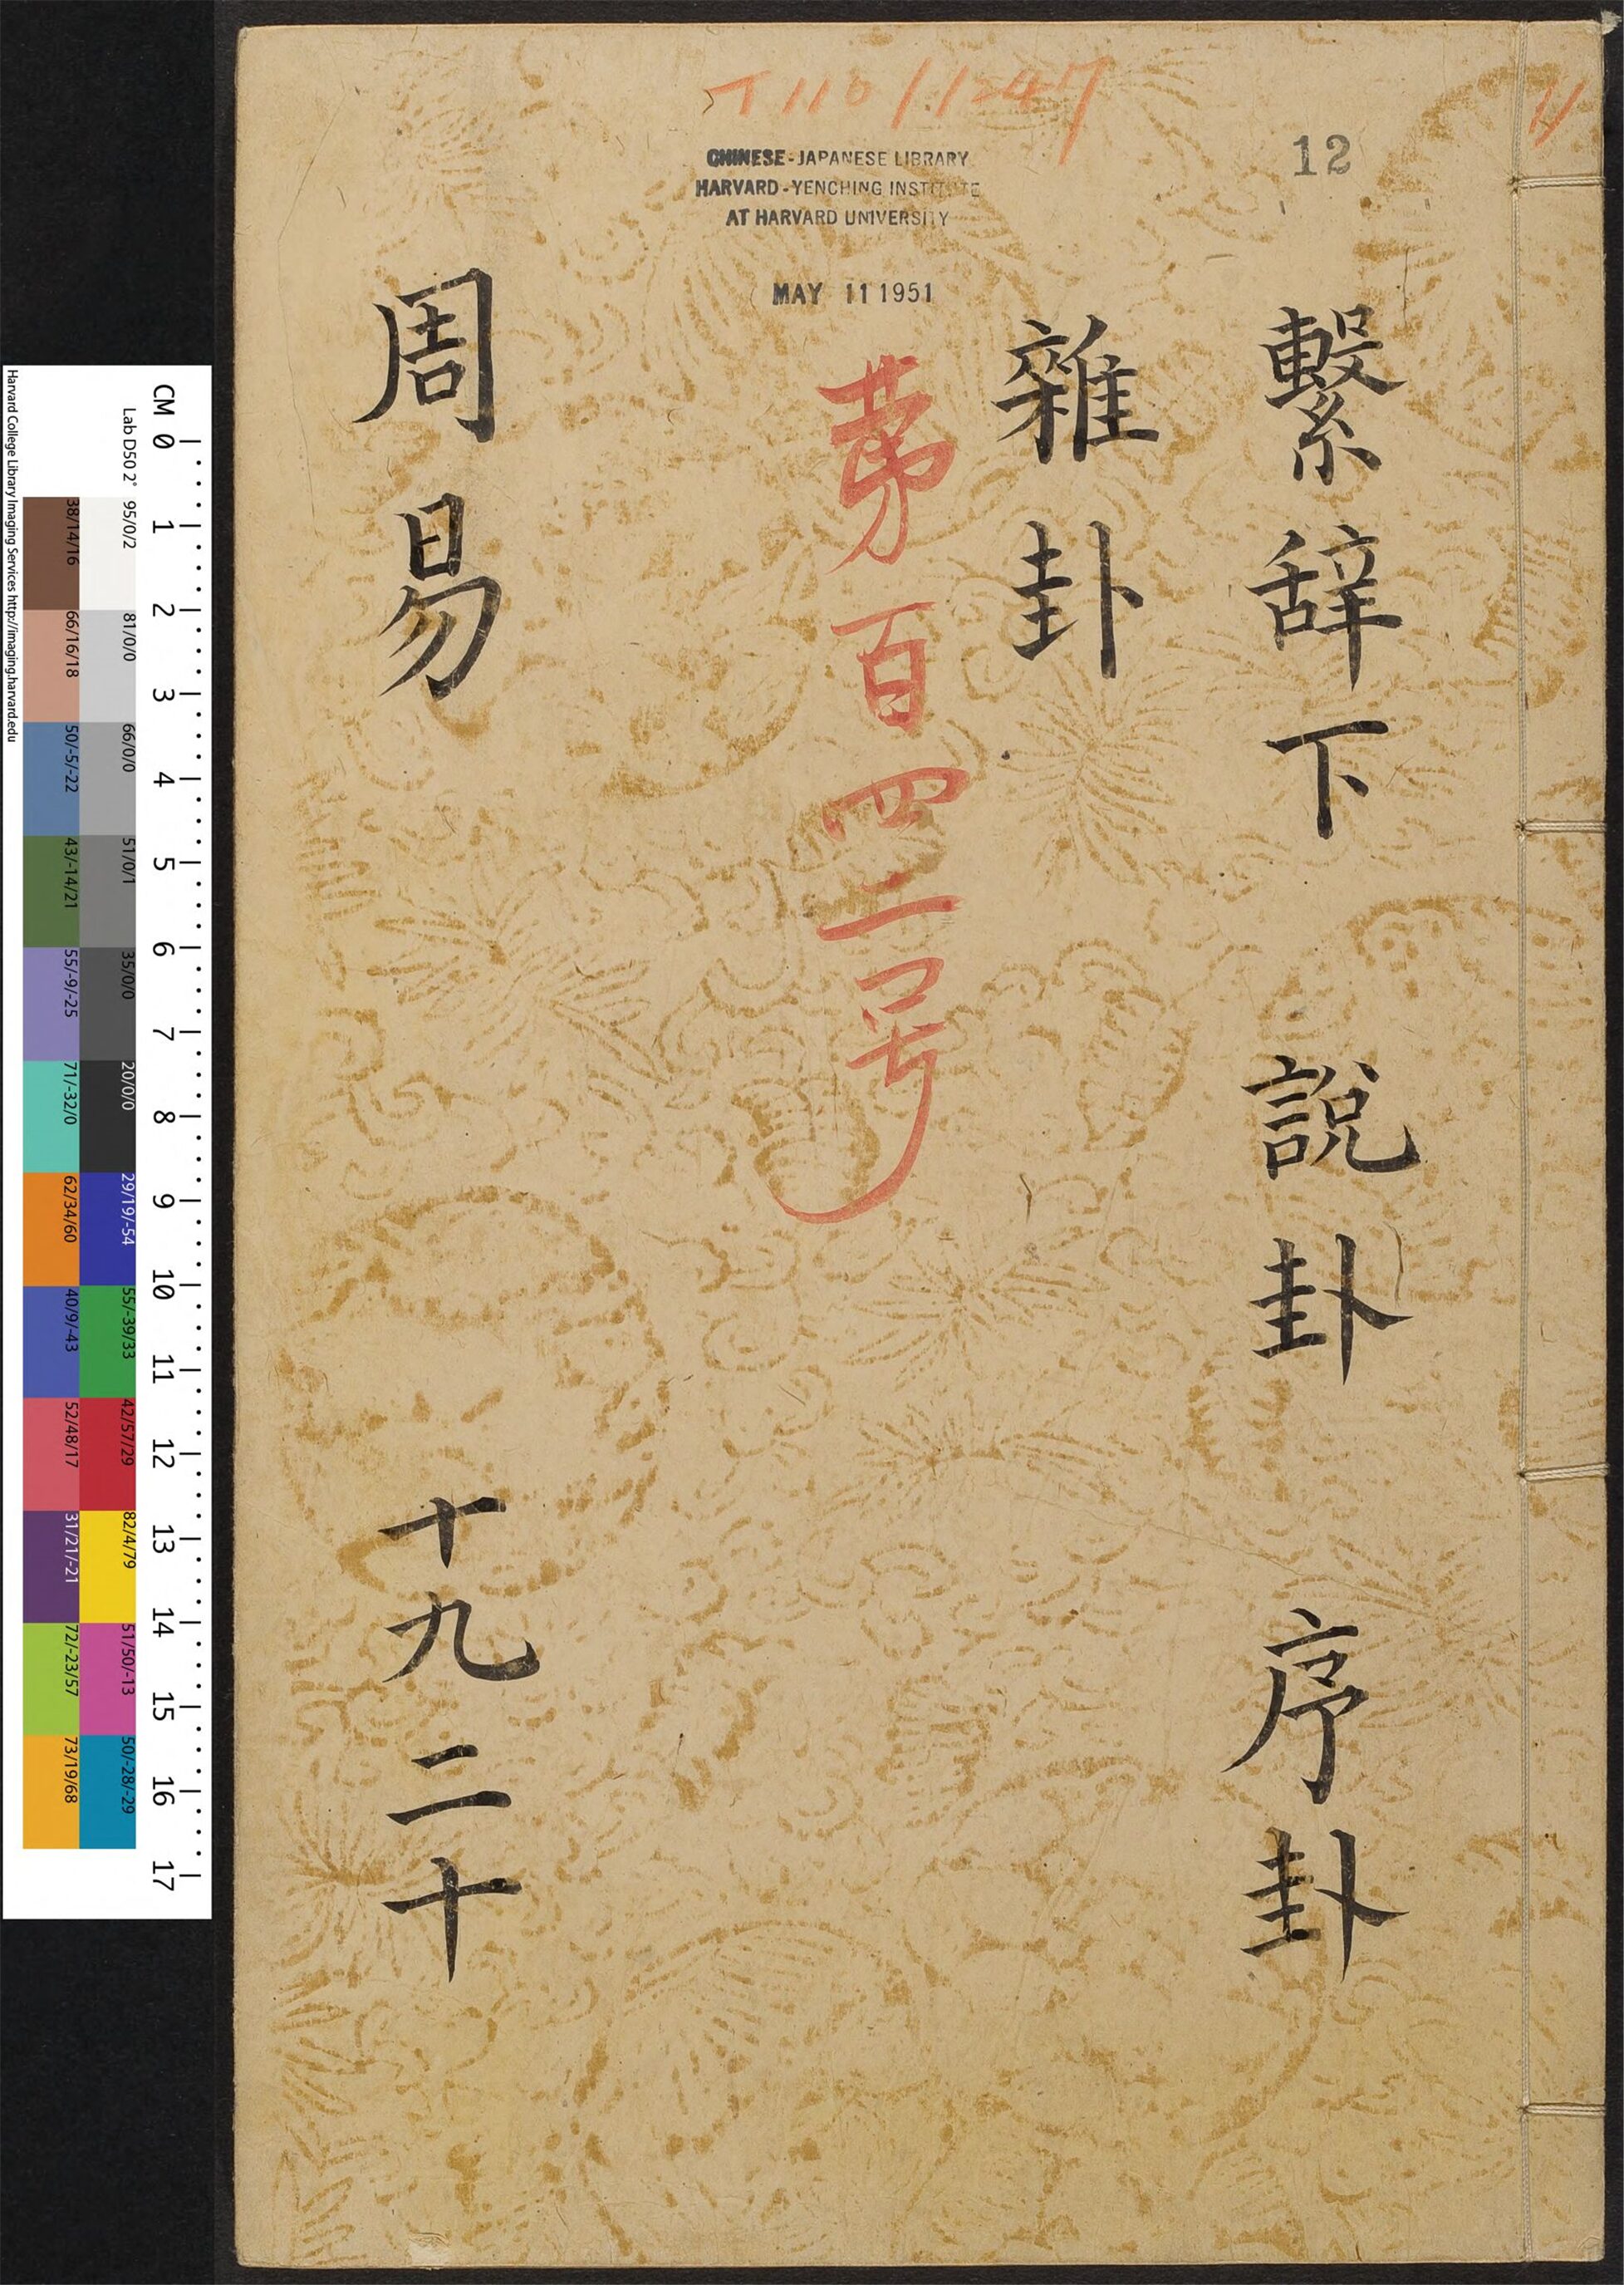 T 110/1247
11
12
CHINESE-JAPANESE LIBRARY
HARVARD-YENCHING INSTITUTE
AT HARVARD UNIVERSITY
MAY 11 1951
繫辭下 說卦 序卦
雜卦
第百四二号
周易 十九二十
CM 0 1 2 3 4 5 6 7 8 9 10 11 12 13 14 15 16 17
Lab D50 2° 95/0/2 81/0/0 66/0/0 51/0/1 35/0/0 20/0/0 29/19/-54 55/-39/33 42/57/29 82/4/79 51/50/-13 50/-28/-29
38/14/16 66/16/18 50/-5/-22 43/-14/21 55/-9/-25 71/-32/0 62/34/60 40/9/-43 52/48/17 31/21/-21 72/-23/57 73/19/68
Harvard College Library Imaging Services http://imaging.harvard.edu